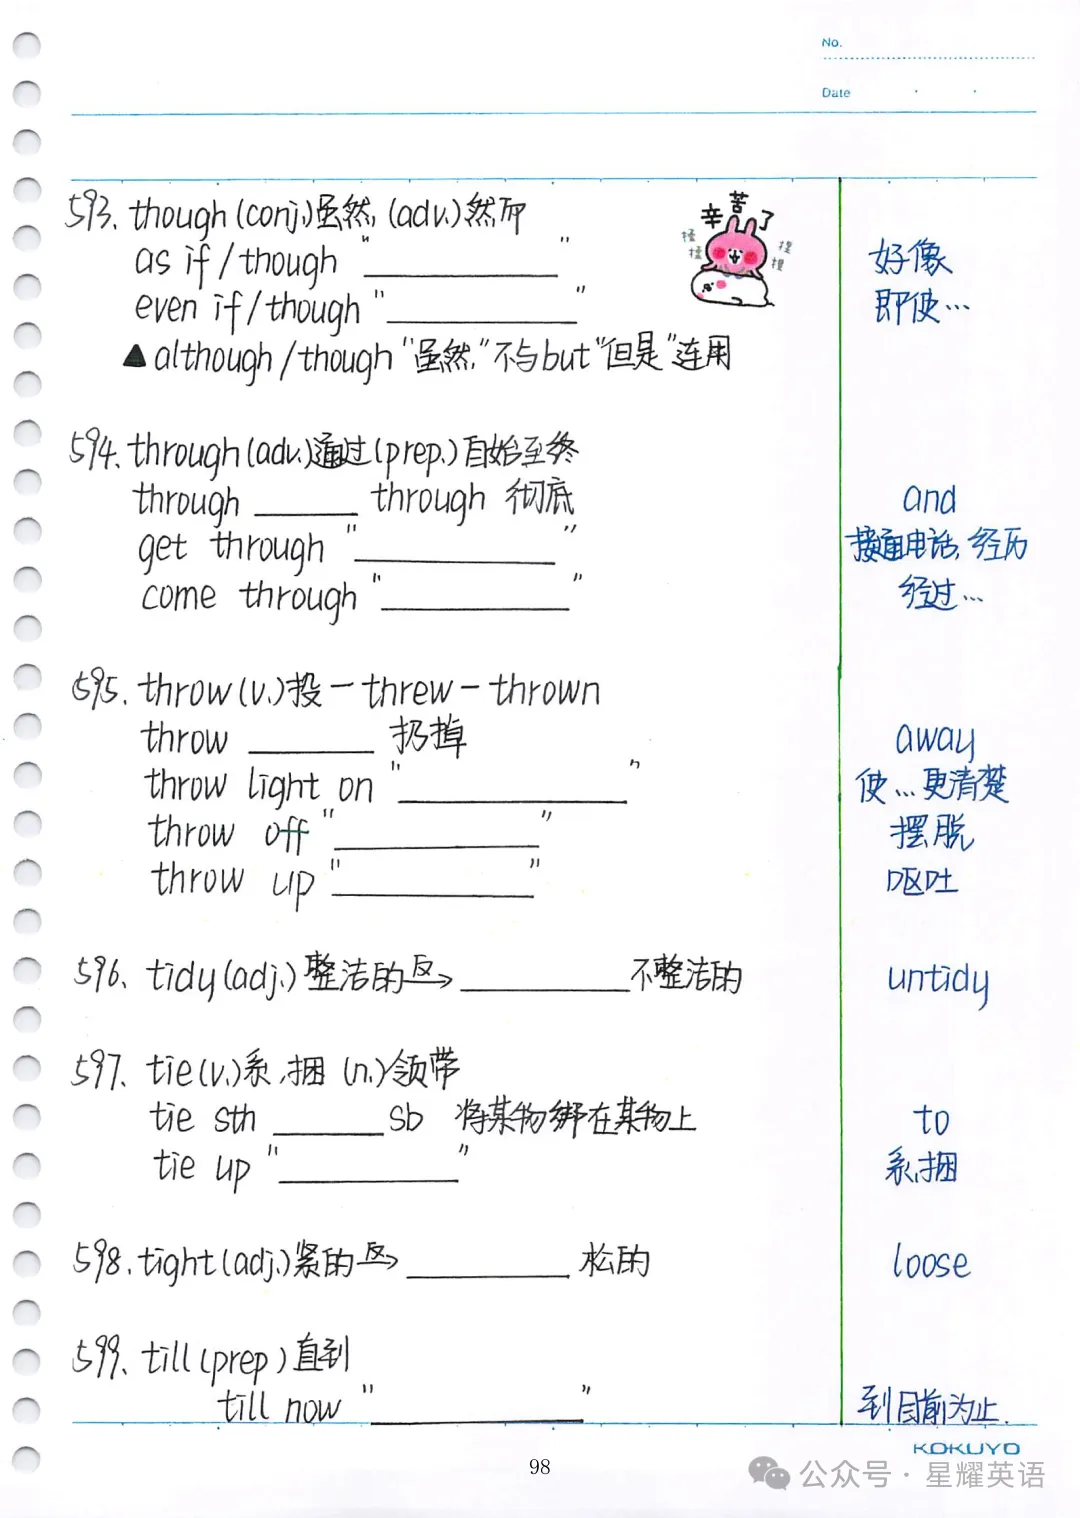 No.
Date
593. though (conj.) 虽然, (adv.) 然而
辛苦了
揉揉
捏捏
as if / though "__________" 好像
even if / though "__________" 即使…
▲ although / though "虽然," 不与 but "但是" 连用
594. through (adv.) 通过 (prep.) 自始至终
through ______ through 彻底 and
get through "__________" 接通电话, 经历
come through "__________" 经过…
595. throw (v.) 投 — threw — thrown
throw ________ 扔掉 away
throw light on "____________" 使…更清楚
throw off "__________" 摆脱
throw up "__________" 呕吐
596. tidy (adj.) 整洁的 反→ __________ 不整洁的 untidy
597. tie (v.) 系, 捆 (n.) 领带
tie sth ______ sb 将某物绑在某物上 to
tie up "__________" 系, 捆
598. tight (adj.) 紧的 反→ __________ 松的 loose
599. till (prep) 直到
till now "____________" 到目前为止.
KOKUYO
98
公众号 · 星耀英语